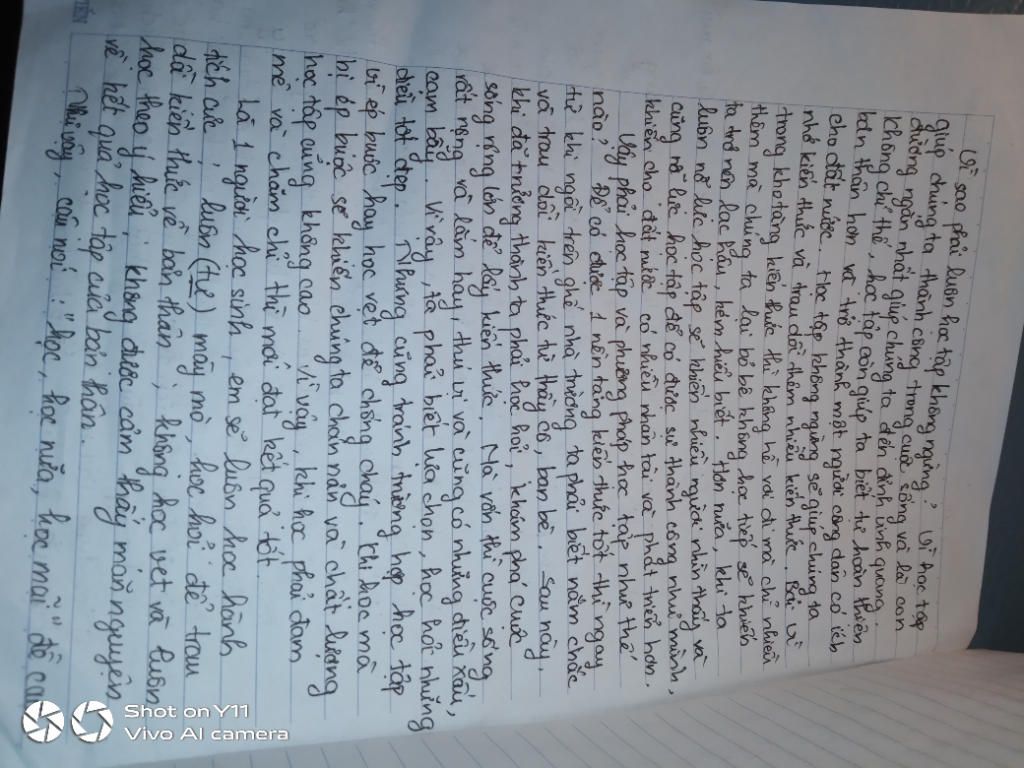 Vì sao phải luôn học tập không ngừng? Vì học tập
giúp chúng ta thành công trong cuộc sống và là con
đường ngắn nhất giúp chúng ta đến đỉnh vinh quang.
Không chỉ thế, học tập còn giúp ta biết tự hoàn thiện
bản thân hơn và trở thành một người công dân có ích
cho đất nước. Học tập không ngừng sẽ giúp chúng ta
nhớ kiến thức và trau dồi thêm nhiều kiến thức. Bởi vì
trong kho tàng kiến thức thì không hề vơi đi mà chỉ nhiều
thêm mà chúng ta lại bỏ bê không học tiếp sẽ khiến
ta trở nên lạc hậu, kém hiểu biết. Hơn nữa, khi ta
luôn nỗ lực học tập sẽ khiến nhiều người nhìn thấy và
cũng nỗ lực học tập để có được sự thành công như mình,
khiến cho đất nước có nhiều nhân tài và phát triển hơn.
Vậy phải học tập và phương pháp học tập như thế
nào? Để có được 1 nền tảng kiến thức tốt thì ngay
từ khi ngồi trên ghế nhà trường ta phải biết nắm chắc
và trau dồi kiến thức từ thầy cô, bạn bè. Sau này,
khi đã trưởng thành ta phải học hỏi, khám phá cuộc
sống rộng lớn để lấy kiến thức. Mà vốn thì cuộc sống
rất rộng và lắm hay, thú vị và cũng có những điều xấu,
cạm bẫy. Vì vậy, ta phải biết lựa chọn, học hỏi những
điều tốt đẹp. Nhưng cũng tránh trường hợp học tập
vì ép buộc hay học vẹt để chống cháy. Chỉ học mà
bị ép buộc sẽ khiến chúng ta chán nản và chất lượng
học tập cũng không cao. Vì vậy, khi học phải đam
mê và chăm chỉ thì mới đạt kết quả tốt.
Là 1 người học sinh, em sẽ luôn học hành
tích cực, luôn (tự) mày mò, học hỏi để trau
dồi kiến thức về bản thân; không học vẹt và luôn
học theo ý hiểu; không được cảm thấy mãn nguyện
về kết quả học tập của bản thân.
Như vậy, câu nói: "Học, học nữa, học mãi" đề cao
Shot on Y11
Vivo AI camera